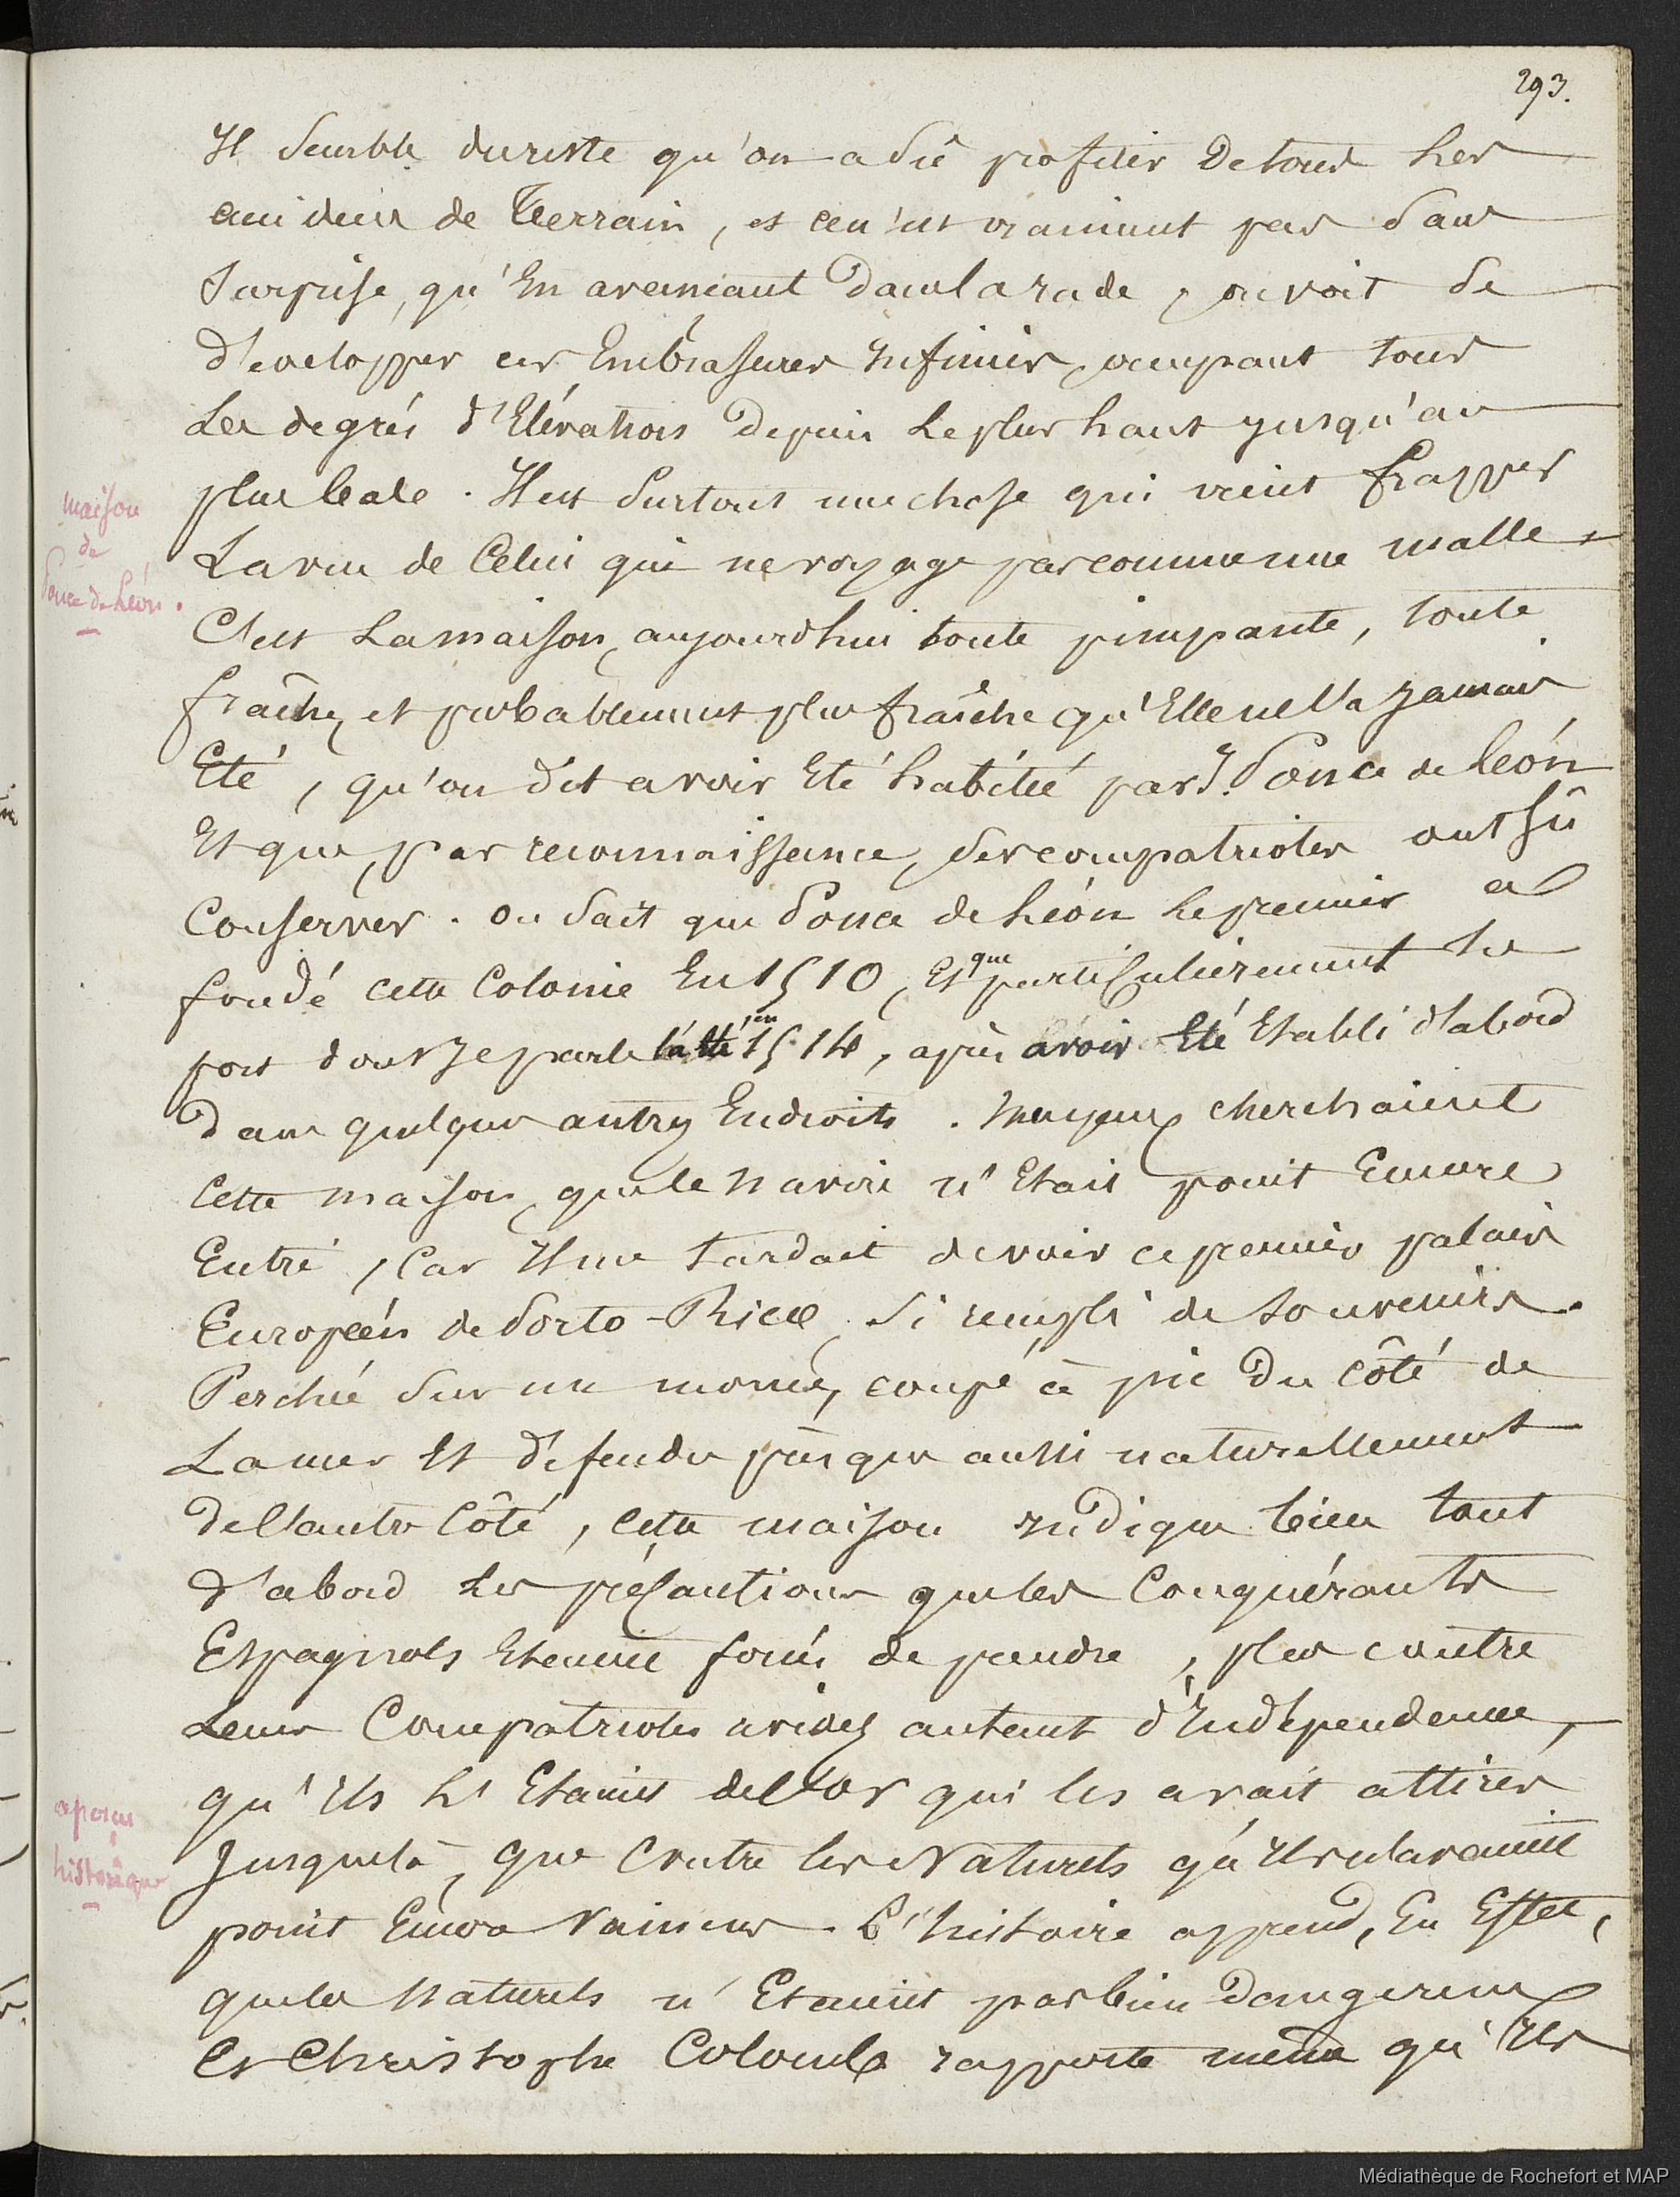 293.
Il semble du reste qu'on a dû profiter de tous les
accidens de Terrain, et ce n'est vraiment pas sans
surprise, qu'En avançant dans la rade, on voit se
développer ces Embrasures infinies, occupant tous
Les degrés d'Elévations depuis le plus haut jusqu'au
plus bas. Il est surtout une chose qui vient frapper
La vue de Celui qui ne voyage pas comme une malle,
maison
de
Ponce de Léon.
C'est La maison, aujourd'hui toute pimpante, toute
fraîche, et probablement plus fraîche qu'Elle ne l'a jamais
Eté, qu'on dit avoir Eté habitée par J. Ponce de León
Et que, par reconnaissance, ses compatriotes ont sû
Conserver. on sait que Ponce de León le premier a
fondé cette Colonie En 1510, Et que particulièrement le
port dont je parle l'a été en 1514, après avoir Eté Etabli d'abord
dans quelques autres Endroits. mes yeux cherchaient
Cette maison, que le navire n'Etait point Encore
Entré, Car Il me tardait de voir ce premier palais
Européen de Porto-Rico, si rempli de souvenirs.
Perchée sur un morne, coupé à pic du côté de
La mer Et défendu presque aussi naturellement
de l'autre Côté, cette maison indique bien tout
d'abord les précautions que les Conquérants
Espagnols Etaient forcés de prendre, plus contre
Leurs Compatriotes avides autant d'Indépendance,
qu'Ils l'Etaient de l'or qui les avait attirés
apercu
historique
jusque là, que contre les Naturels qu'Ils n'avaient
point Encore Vaincus. L'histoire apprend, En Effet,
que les naturels n'Etaient pas bien dangereux
Et Christophe Colomb rapporte même qu'Ils
Médiathèque de Rochefort et MAP